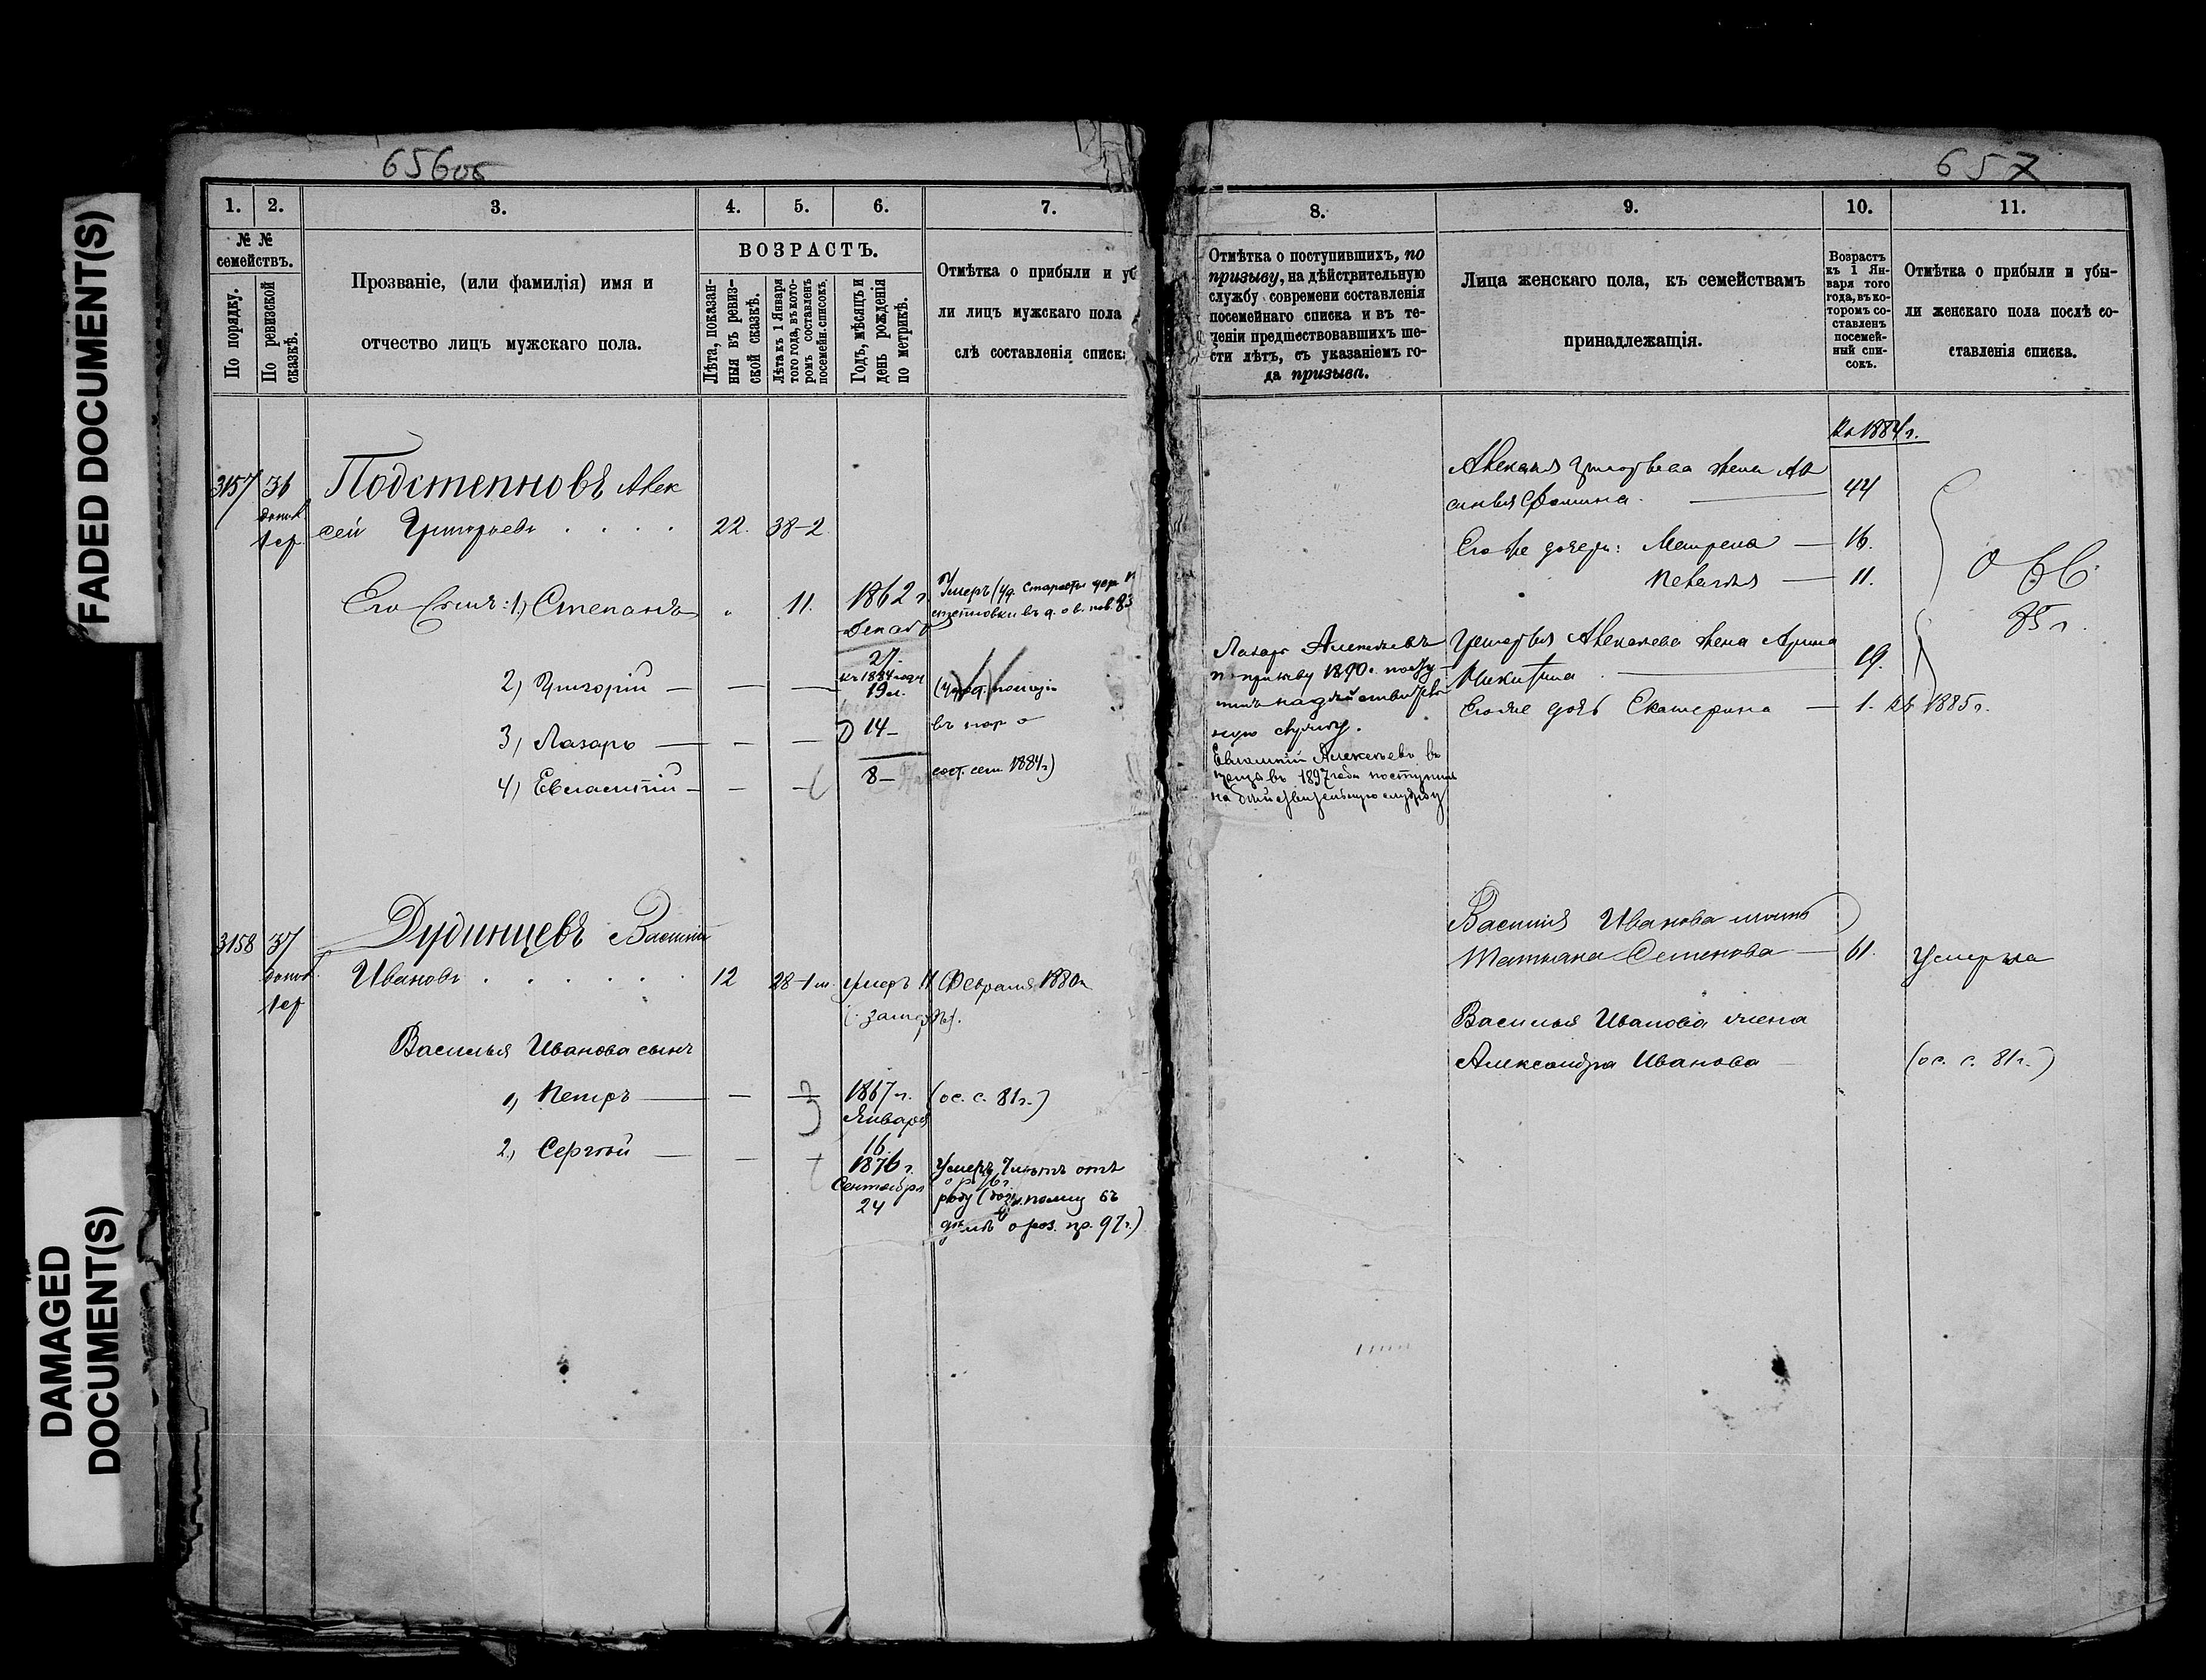 FADED DOCUMENT(S)
DAMAGED
DOCUMENT(S)
656об
1.
2.
3.
4.
5.
6.
7.
№ №
семействъ.
По порядку.
По ревизской
сказкѣ.
Прозваніе, (или фамилія) имя и
отчество лицъ мужскаго пола.
ВОЗРАСТЪ.
Лѣта, показан-
ныя въ ревиз-
ской сказкѣ.
Лѣта къ 1 Января
того года, въ кото-
ромъ составленъ
посемейн. списокъ.
Годъ, мѣсяцъ и
день рожденія
по метрикѣ.
Отмѣтка о прибыли и уб
ли лицъ мужскаго пола
слѣ составленія списка
3157
36
допол.
1 ср.
Подстепновъ Алек
сей Григорьевъ
22.
38-2
Его сынъ: 1) Степанъ
11.
1862 г.
Декабр
27.
Умеръ (уд. старосты дер.
2) Григорій
къ 1884 году
19 л.
3) Лазарь
14
въ
4) Евлампій
8
сост. сем. 1884 г.)
3158
37
допол.
1 ср
Дудинцевъ Василій
Ивановъ
12
28-1 м.
умеръ 11 Февраля 1880 г.
Василья Иванова сынъ
1) Петръ
1867 г.
Января
16.
(ос. с. 81 г.)
2) Сергѣй
1876 г.
Сентября
24
Умеръ 7 лѣтъ отъ
роду
дѣлѣ о роз. пр. 97 г.)
657
8.
9.
10.
11.
Отмѣтка о поступившихъ, по
призыву, на дѣйствительную
службу современи составленія
посемейнаго списка и въ те-
ченіи предшествовавшихъ ше-
сти лѣтъ, съ указаніемъ го-
да призыва.
Лица женскаго пола, къ семействамъ
принадлежащія.
Возрастъ
къ 1 Ян-
варя того
года, въ ко-
торомъ со-
ставленъ
посемей-
ный спи-
сокъ.
Отмѣтка о прибыли и убы-
ли женскаго пола послѣ со-
ставленія списка.
Къ 1884 г.
Алексѣя Григорьева жена Ак
синья Фомина
44
Его же дочери: Матрена
16.
Наталья
11.
85 г.
Лазарь Алексѣевъ
по призыву 1890 г. посту
пилъ на дѣйствитель
ную службу.
Евлампій Алексѣевъ въ
1897 году поступилъ
на дѣйствительную службу
Григорья Алексѣева жена Арина
Никитина
19.
Его же дочь Екатерина
1. къ 1885 г.
Василія Иванова мать
Татьяна Семенова
61.
Умерла
Василья Иванова жена
Александра Иванова
(ос. с. 81 г.)